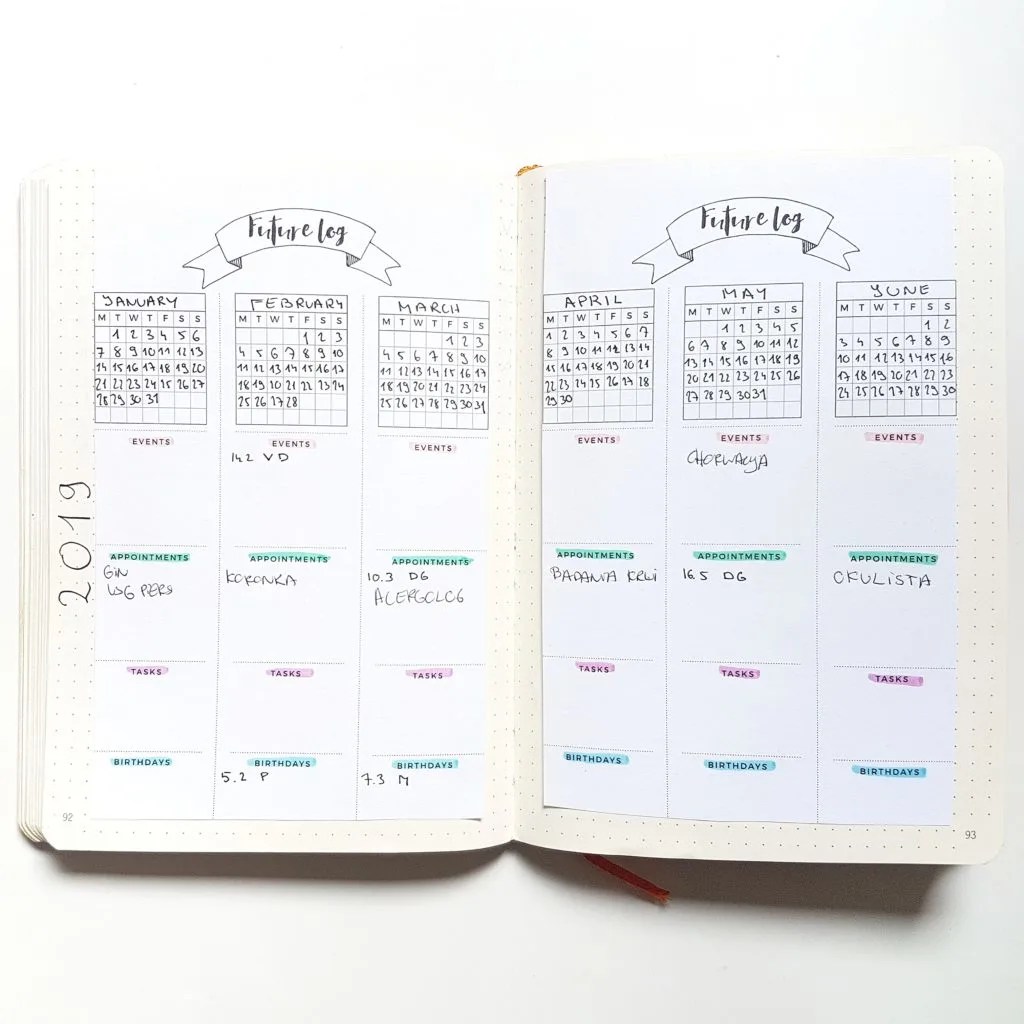 Future log
JANUARY
M T W T F S S
1 2 3 4 5 6
7 8 9 10 11 12 13
14 15 16 17 18 19 20
21 22 23 24 25 26 27
28 29 30 31
FEBRUARY
M T W T F S S
1 2 3
4 5 6 7 8 9 10
11 12 13 14 15 16 17
18 19 20 21 22 23 24
25 26 27 28
MARCH
M T W T F S S
1 2 3
4 5 6 7 8 9 10
11 12 13 14 15 16 17
18 19 20 21 22 23 24
25 26 27 28 29 30 31
2019
EVENTS
EVENTS
14.2 VD
EVENTS
APPOINTMENTS
GIN
APPOINTMENTS
KORONKA
APPOINTMENTS
10.3 DG
ALERGOLOG
TASKS
TASKS
TASKS
BIRTHDAYS
BIRTHDAYS
5.2 P
BIRTHDAYS
7.3 M
92
Future log
APRIL
M T W T F S S
1 2 3 4 5 6 7
8 9 10 11 12 13 14
15 16 17 18 19 20 21
22 23 24 25 26 27 28
29 30
MAY
M T W T F S S
1 2 3 4 5
6 7 8 9 10 11 12
13 14 15 16 17 18 19
20 21 22 23 24 25 26
27 28 29 30 31
JUNE
M T W T F S S
1 2
3 4 5 6 7 8 9
10 11 12 13 14 15 16
17 18 19 20 21 22 23
24 25 26 27 28 29 30
EVENTS
EVENTS
CHORWACJA
EVENTS
APPOINTMENTS
BADANIA KRWI
APPOINTMENTS
16.5 DG
APPOINTMENTS
OKULISTA
TASKS
TASKS
TASKS
BIRTHDAYS
BIRTHDAYS
BIRTHDAYS
93